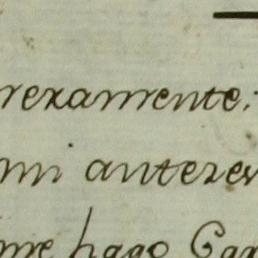 rexamente.
mi anteces
me hago Car